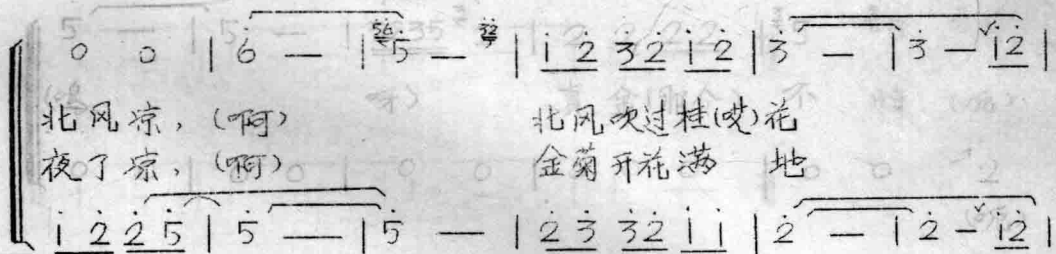 0 0 | 6̇ — | 5̇ — | i 2̇ 3̇2̇ i 2̇ | 3̇ — | 3̇ — i2̇ |
北风凉，(啊) 北风吹过桂(哎)花
夜了凉，(啊) 金菊开花满 地
i 2̇ 2̇ 5̇ | 5̇ — | 5̇ — | 2̇ 3̇ 3̇2̇ i i | 2̇ — | 2̇ — i2̇ |